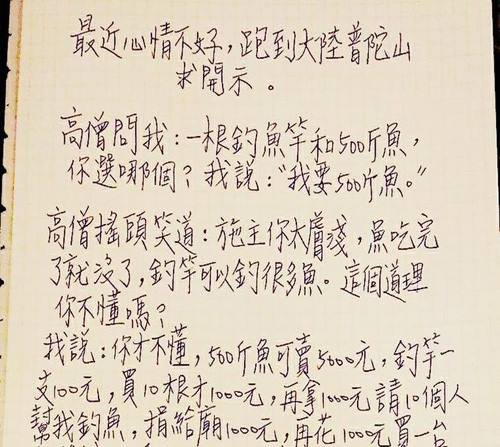 最近心情不好，跑到大陸普陀山
求開示。
高僧問我：一根釣魚竿和500斤魚，
你選哪個？我說："我要500斤魚。"
高僧搖頭笑道：施主你太膚淺，魚吃完
了就沒了，釣竿可以釣很多魚。這個道理
你不懂嗎？
我說：你才不懂，500斤魚可賣5000元，釣竿一
支100元，買10根才1000元，再拿1000元請10個人
幫我釣魚，捐給廟1000元，再花1000元買一台